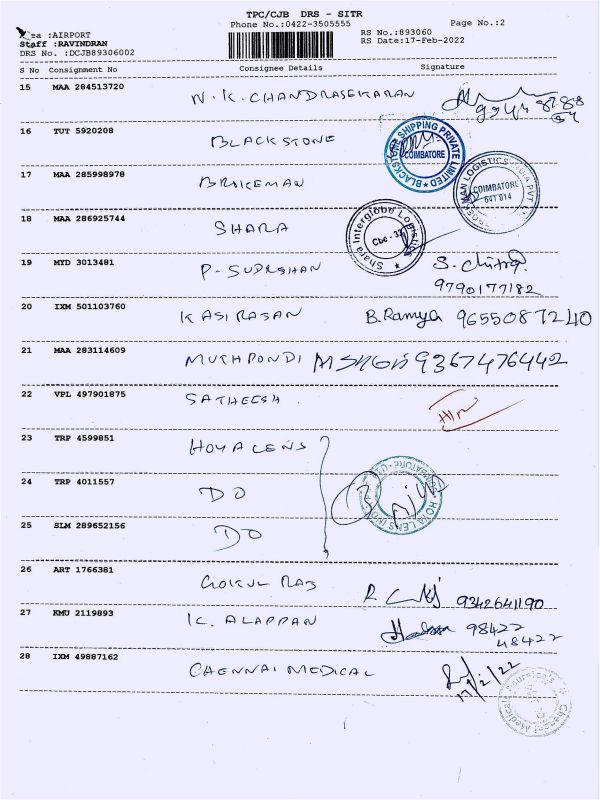 TPC/CJB DRS - SITR
Phone No.:0422-3505555
Page No.:2
Area :AIRPORT
RS No.:893060
Staff :RAVINDRAN
RS Date:17-Feb-2022
DRS No. :DCJB89306002
S No Consignment No Consignee Details Signature
15 MAA 284513720 N.K. CHANDRASEKARAN
16 TUT 5920208 BLACKSTONE
BLACKSTONE SHIPPING PRIVATE LIMITED COIMBATORE
17 MAA 285998978 BRAKEMAN
LOGISTICS COIMBATORE 641 014
18 MAA 286925744 SHARA
Shara Interglobe Logistics
19 MYD 3013481 P. SUDRSHAN S. Chitra
9790177182
20 IXM 501103760 KASIRASAN B.Ramya 9655087240
21 MAA 283114609 MUTHPONDI 9367476442
22 VPL 497901875 SATHEESH
23 TRP 4599851 HOYA LENS
24 TRP 4011557 DO
HOYA LENS
25 SLM 289652156 DO
26 ART 1766381 GOKUL RAJ 9342641190
27 KMU 2119893 K. ALAPPAN 98422
48422
28 IXM 49887162 CHENNAI MEDICAL 17/2/22
Chennai Medical